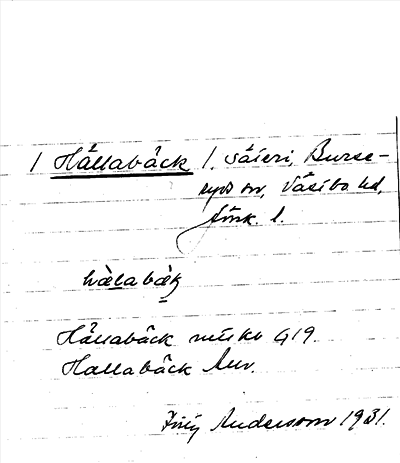 1 Hållabäck 1. säteri, Burse-
ryds sn, Västbo hd,
Jönk. l.
hàlabæ̀k
Hållabäck
Hallabäck
Andersson 1931.